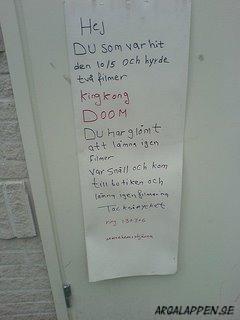 Hej
DU som var hit
den 10/5 och hyrde
två filmer
king kong
DOOM
Du har glömt
att lämna igen
filmer
var snäll och kom
till butiken och
lämna igen filmerna
Tack så mycket
ring
ARGALAPPEN.SE